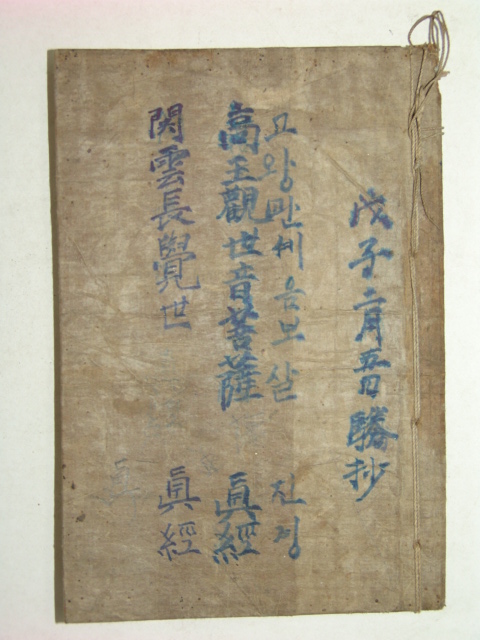 戊子二月五日勝抄
고왕관세음보살 진경
高王觀世音菩薩 眞經
関雲長覺世 眞經